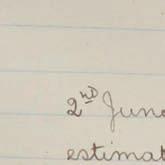 2nd June
estimat